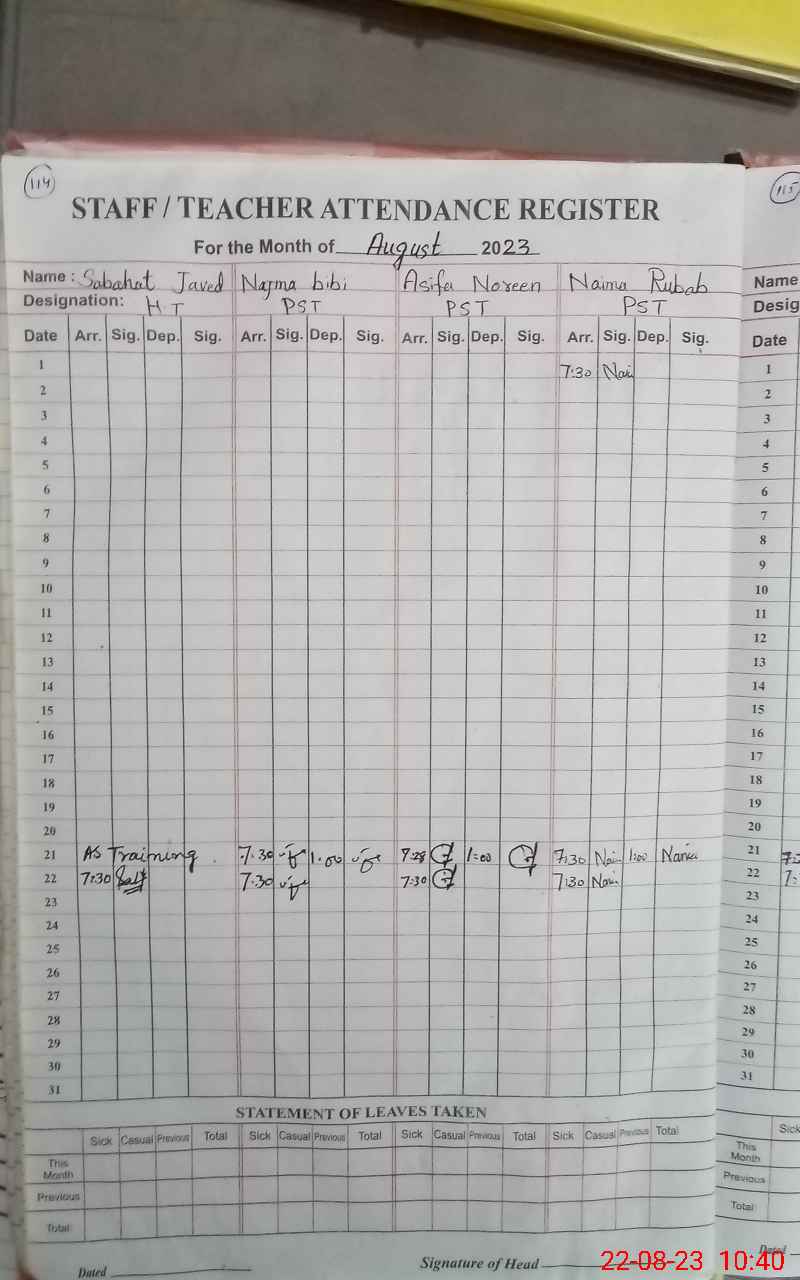 114
115
STAFF / TEACHER ATTENDANCE REGISTER
For the Month of August 2023
Name : Sabahat Javed Najma bibi Asifa Noreen Naima Rubab
Designation: H T PST PST PST
Date Arr. Sig. Dep. Sig. Arr. Sig. Dep. Sig. Arr. Sig. Dep. Sig. Arr. Sig. Dep. Sig.
1 7:30 Nai
2
3
4
5
6
7
8
9
10
11
12
13
14
15
16
17
18
19
20
21 AS Training. 7:30 1:00 7:28 1:00 7:30 Nai 1:00
22 7:30 7:30 7:30 7:30
23
24
25
26
27
28
29
30
31
STATEMENT OF LEAVES TAKEN
Sick Casual Previous Total Sick Casual Previous Total Sick Casual Previous Total Sick Casual Previous Total
This Month
Previous
Total
Dated
Signature of Head
Name
Desig
Date
1
2
3
4
5
6
7
8
9
10
11
12
13
14
15
16
17
18
19
20
21
22
23
24
25
26
27
28
29
30
31
Sick
This Month
Previous
Total
Dated
22-08-23 10:40